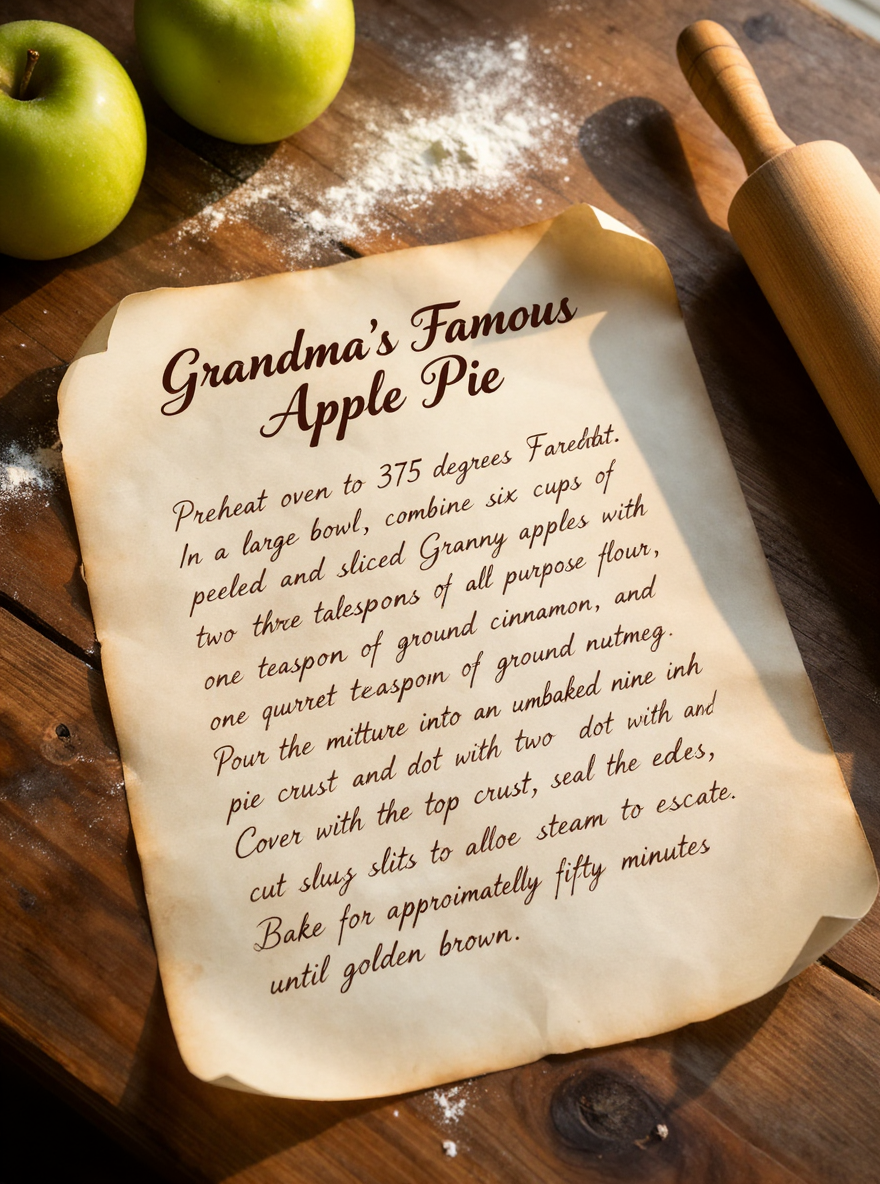 Grandma's Famous
Apple Pie
Preheat oven to 375 degrees
In a large bowl, combine six cups of
peeled and sliced Granny apples with
two thre talespons of all purpose flour,
one teaspon of ground cinnamon, and
one qurret teaspoın of ground nutmeg.
Pour the mitture into an umbaked nine inh
pie crust and dot with two dot with and
Cover with the top crust, seal the edes,
cut slits to alloe steam to escate.
Bake for approimatelly fifty minutes
until golden brown.